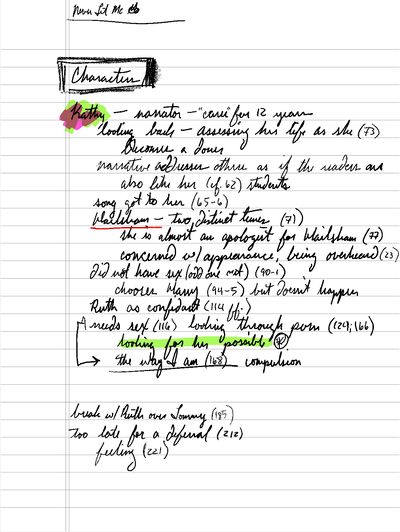 Never Let Me Go
Characters
Kathy — narrator — "carer" for 12 years
looking back — assessing his life as she (73)
becomes a donor
narrative addresses others as if the readers are
also like her (cf. 62) students
song got to her (65-6)
Hailsham — two distinct times (71)
she is almost an apologist for Hailsham (77)
concerned w/ appearance, being overheard (23)
did not have sex (90-1)
chooses Harry (94-5) but doesn't happen
Ruth as confidant (114 ff.)
needs sex (116) looking through porn (124; 166)
looking for her possible
→ the way I am (168) compulsion
break w/ Ruth over Tommy (185)
Too late for a deferral (212)
feeling (221)